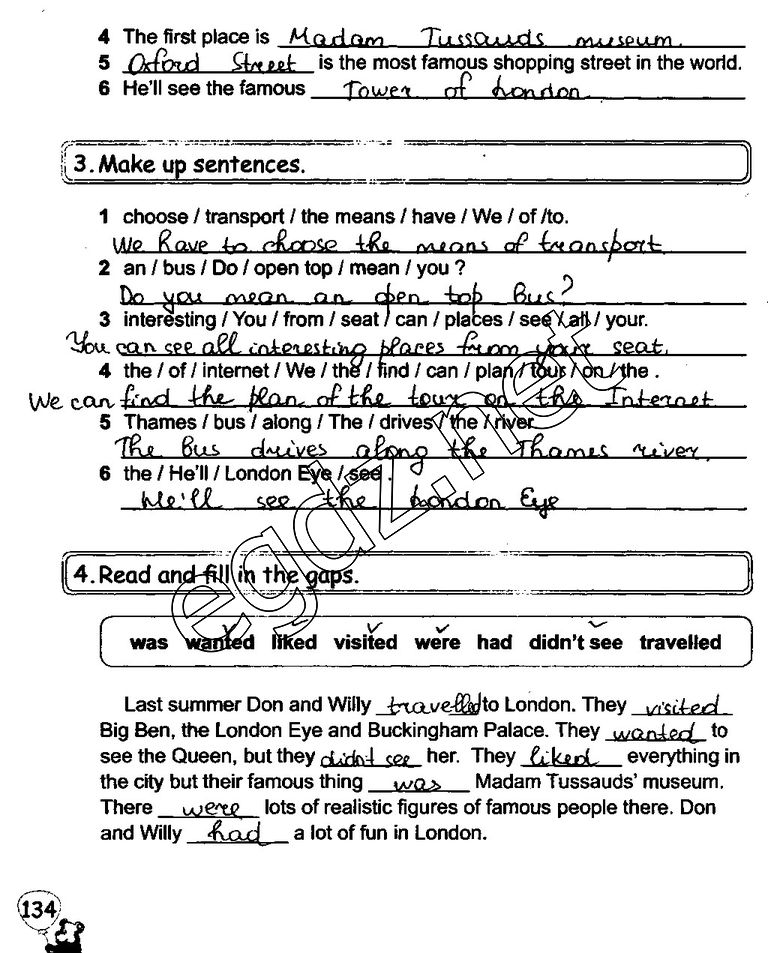 4 The first place is Madam Tussauds museum.
5 Oxford Street is the most famous shopping street in the world.
6 He'll see the famous Tower of London.
3. Make up sentences.
1 choose / transport / the means / have / We / of /to.
We have to choose the means of transport
2 an / bus / Do / open top / mean / you ?
Do you mean an open top bus?
3 interesting / You / from / seat / can / places / see / all / your.
You can see all interesting places from your seat.
4 the / of / internet / We / the / find / can / plan / tour / on / the .
We can find the plan of the tour on the Internet
5 Thames / bus / along / The / drives / the / river
The bus drives along the Thames river.
6 the / He'll / London Eye / see .
He'll see the London Eye
4. Read and fill in the gaps.
was wanted liked visited were had didn't see travelled
Last summer Don and Willy travelled to London. They visited
Big Ben, the London Eye and Buckingham Palace. They wanted to
see the Queen, but they didn't see her. They liked everything in
the city but their famous thing was Madam Tussauds' museum.
There were lots of realistic figures of famous people there. Don
and Willy had a lot of fun in London.
134
egdz.net